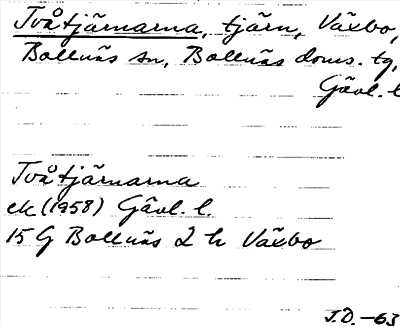 Tvåtjärnarna, tjärn, Växbo,
Bollnäs sn, Bollnäs doms. tg,
Gävl. l
Tvåtjärnarna
ek (1958) Gävl. l.
15 G Bollnäs 2 h Växbo
J.D. -63